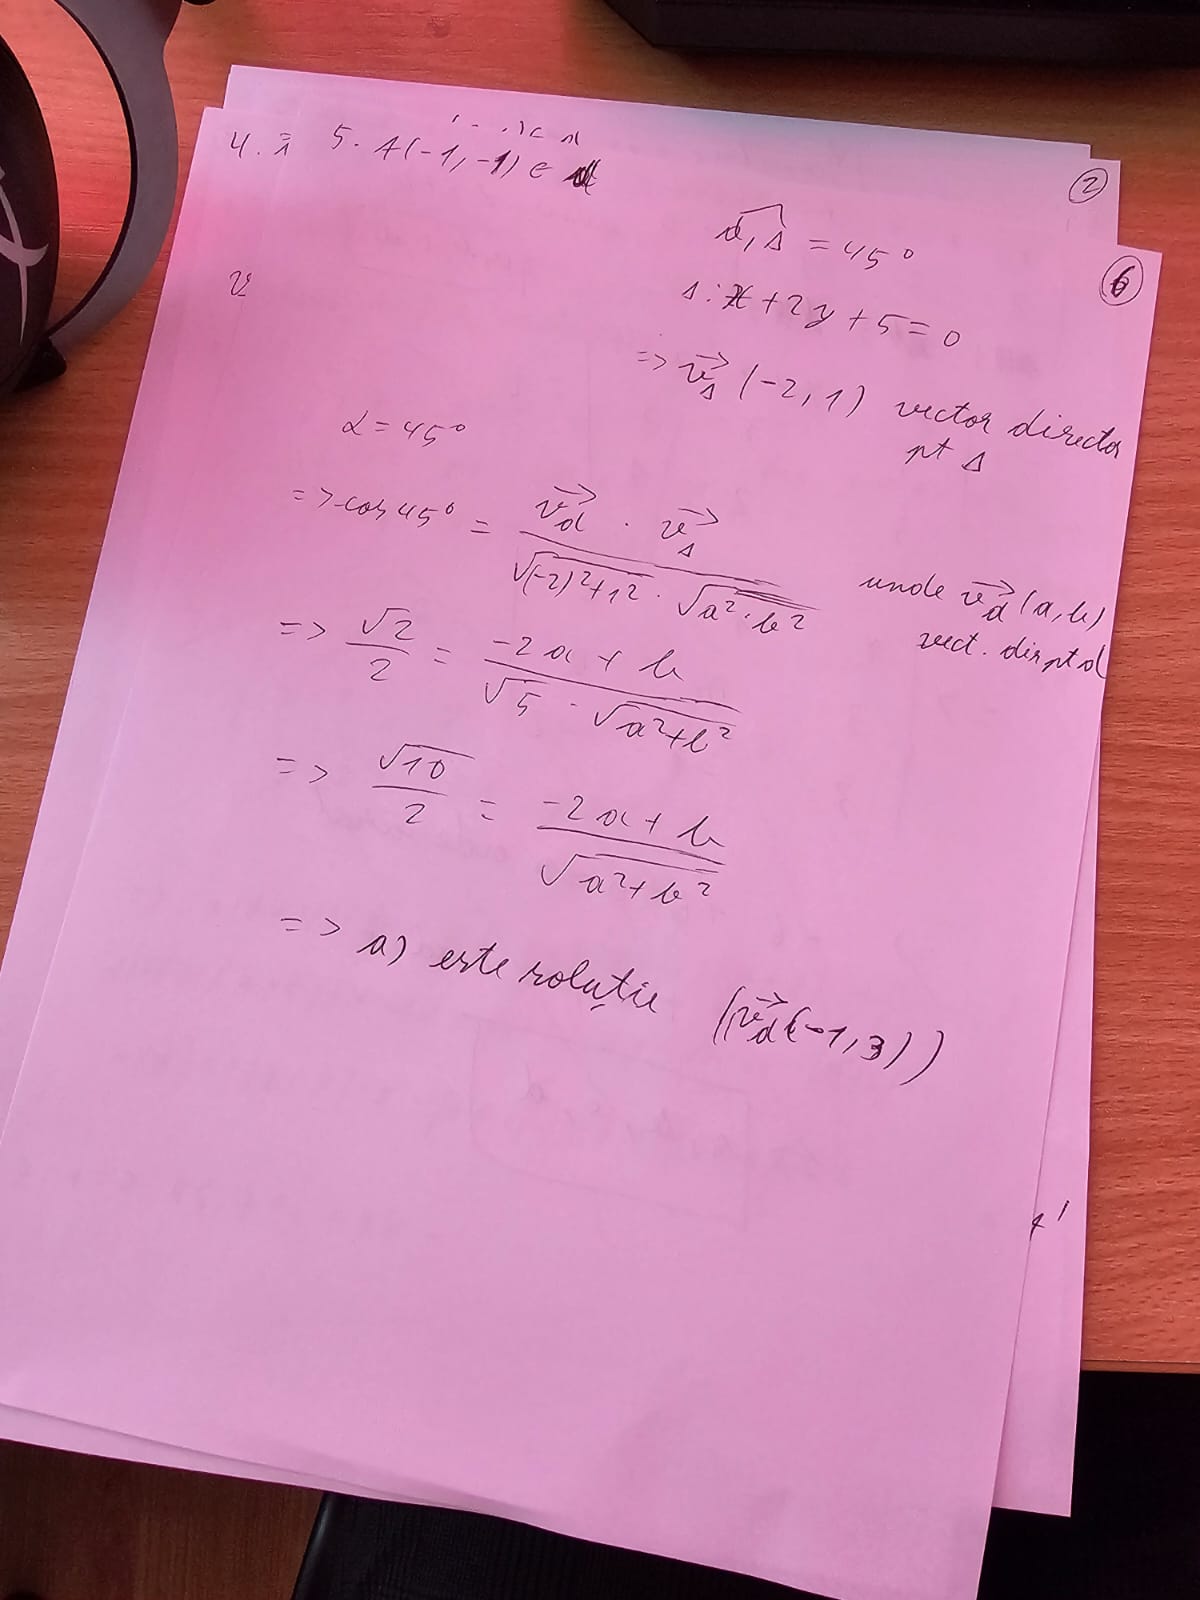 4.
5. A(-1,-1) ∈ d
②
d,s = 45°
⑥
s: x+2y+5=0
=> v⃗s (-2,1) vector director
pt s
α=45°
=> cos 45° = v⃗d · v⃗s / √(-2)²+1² · √a²·b² unde v⃗d (a,b)
vect. dir pt d
=> √2/2 = -2a+b / √5 · √a²+b²
=> √10/2 = -2a+b / √a²+b²
=> a) este soluție (v⃗d(-1,3))